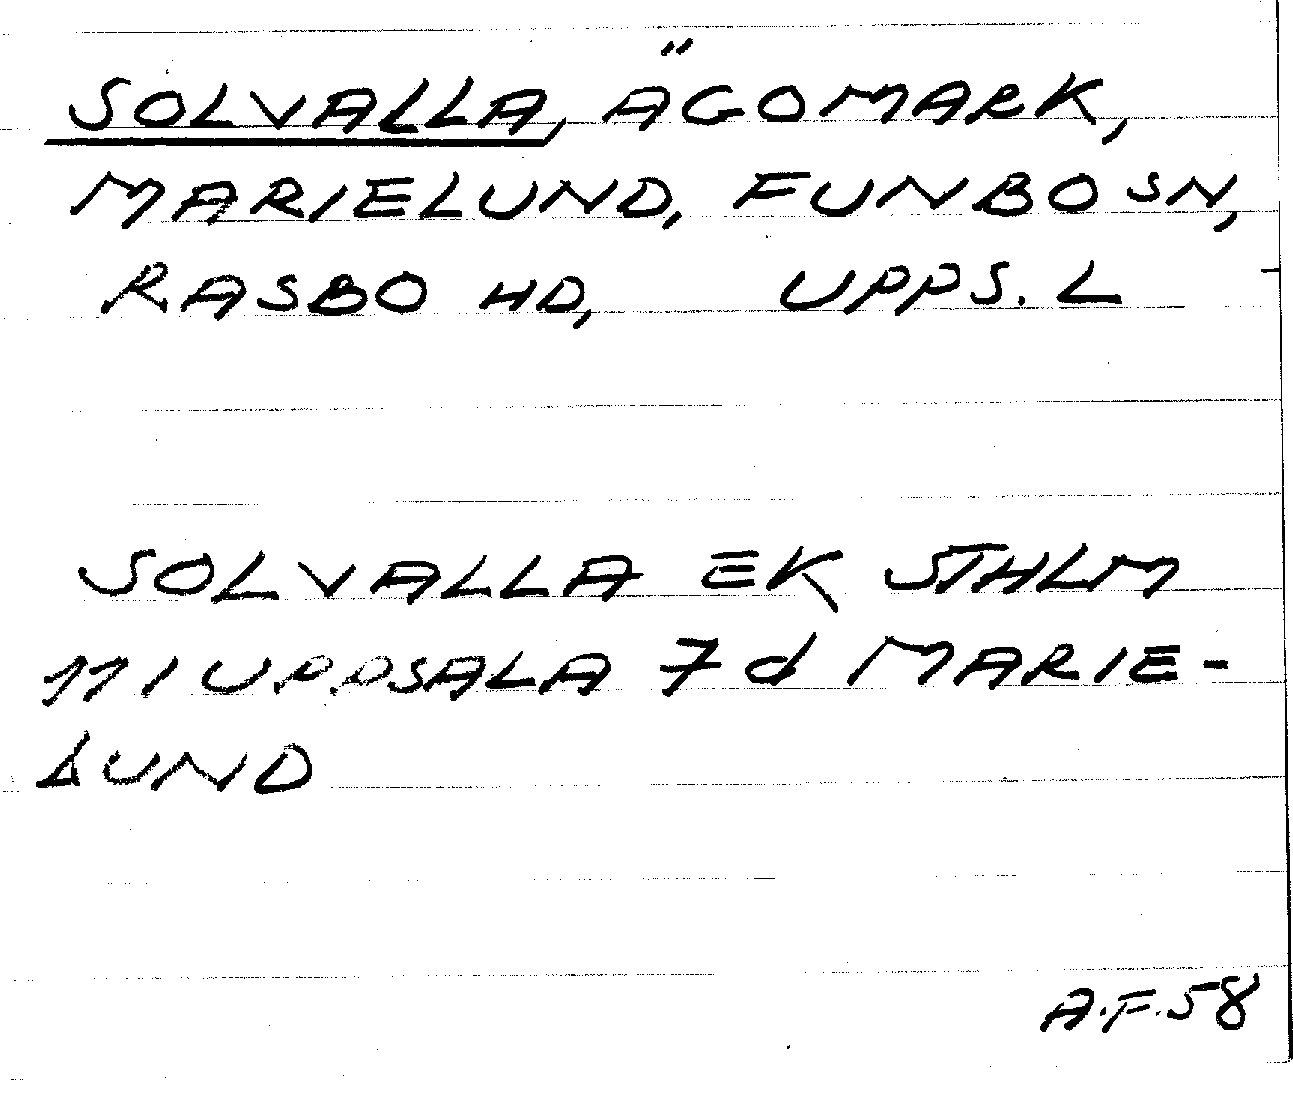 SOLVALLA, ÄGOMARK,
MARIELUND, FUNBO SN,
RASBO HD, UPPS. L
SOLVALLA EK STHLM
11 I UPPSALA 7d MARIE-
LUND
A.F.58